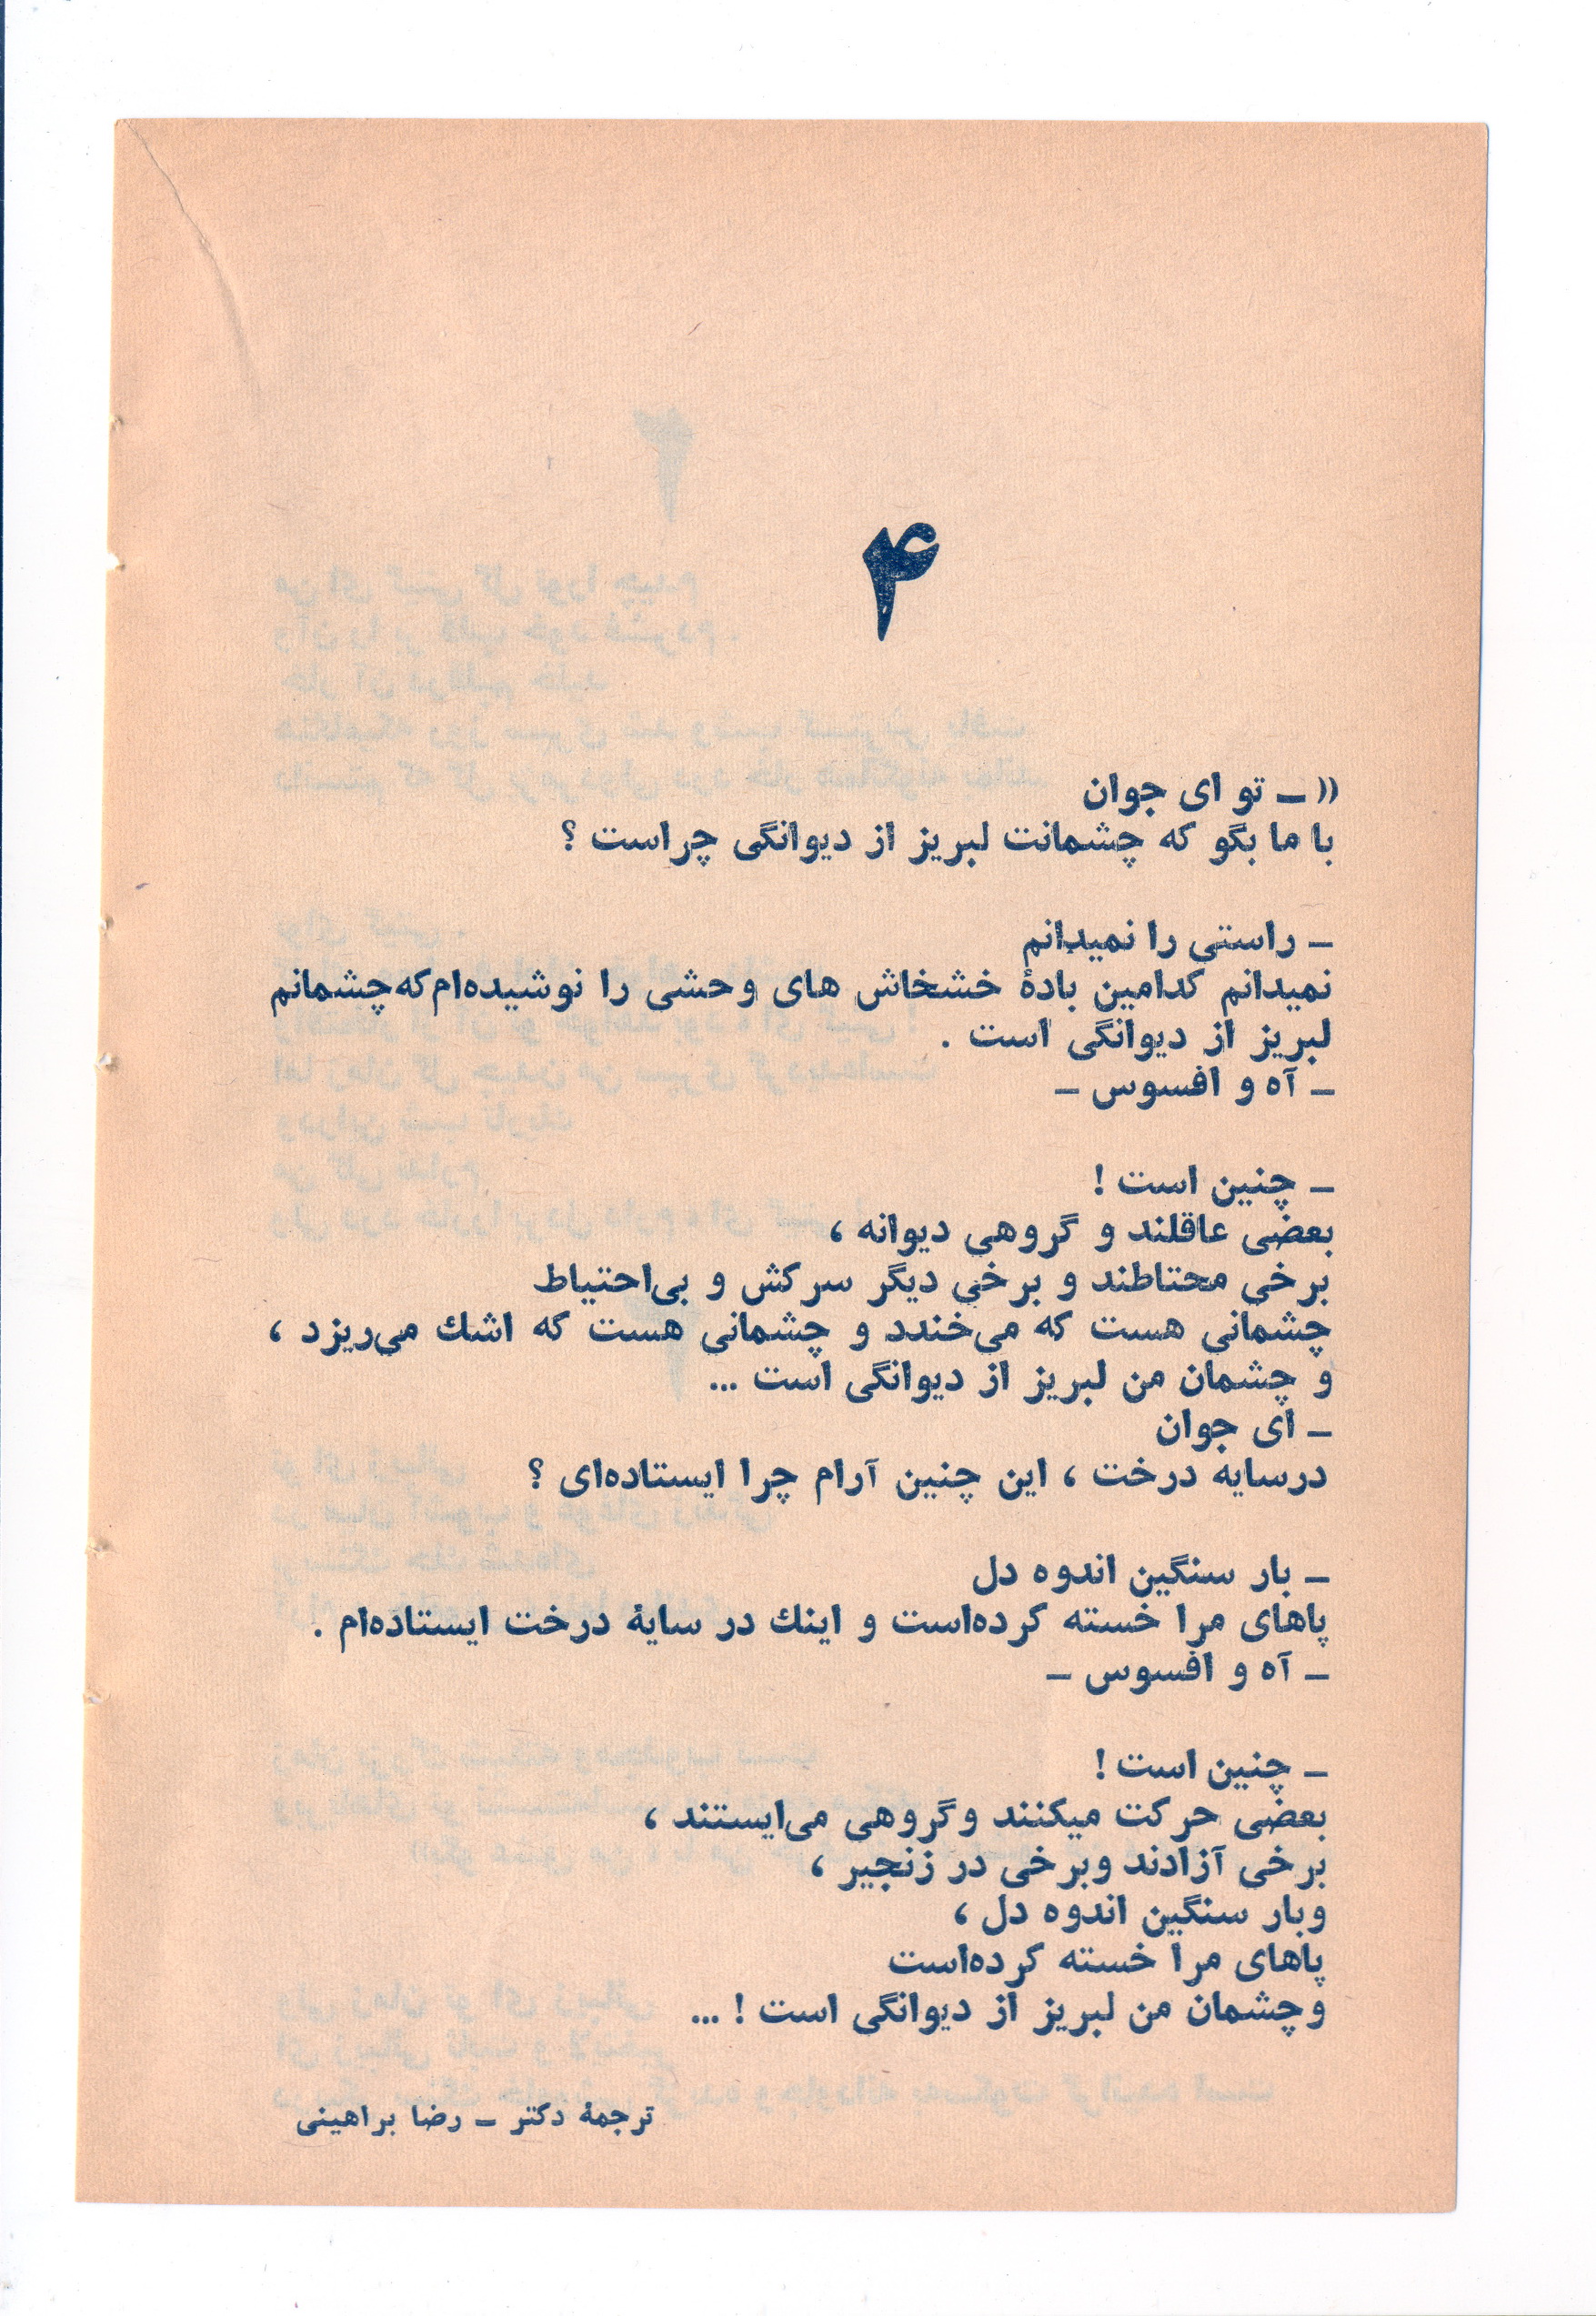 ۴
« ـ تو ای جوان
با ما بگو که چشمانت لبریز از دیوانگی چراست ؟
ـ راستی را نمیدانم
نمیدانم کدامین بادهٔ خشخاش های وحشی را نوشیده‌ام که چشمانم
لبریز از دیوانگی است .
ـ آه و افسوس ـ
ـ چنین است !
بعضی عاقلند و گروهی دیوانه ،
برخی محتاطند و برخی دیگر سرکش و بی‌احتیاط
چشمانی هست که می‌خندد و چشمانی هست که اشك می‌ریزد ،
و چشمان من لبریز از دیوانگی است ...
ـ ای جوان
درسایه درخت ، این چنین آرام چرا ایستاده‌ای ؟
ـ بار سنگین اندوه دل
پاهای مرا خسته کرده‌است و اینك در سایهٔ درخت ایستاده‌ام .
ـ آه و افسوس ـ
ـ چنین است !
بعضی حرکت میکنند وگروهی می‌ایستند ،
برخی آزادند وبرخی در زنجیر ،
وبار سنگین اندوه دل ،
پاهای مرا خسته کرده‌است
وچشمان من لبریز از دیوانگی است ! ...
ترجمهٔ دکتر ـ رضا براهینی